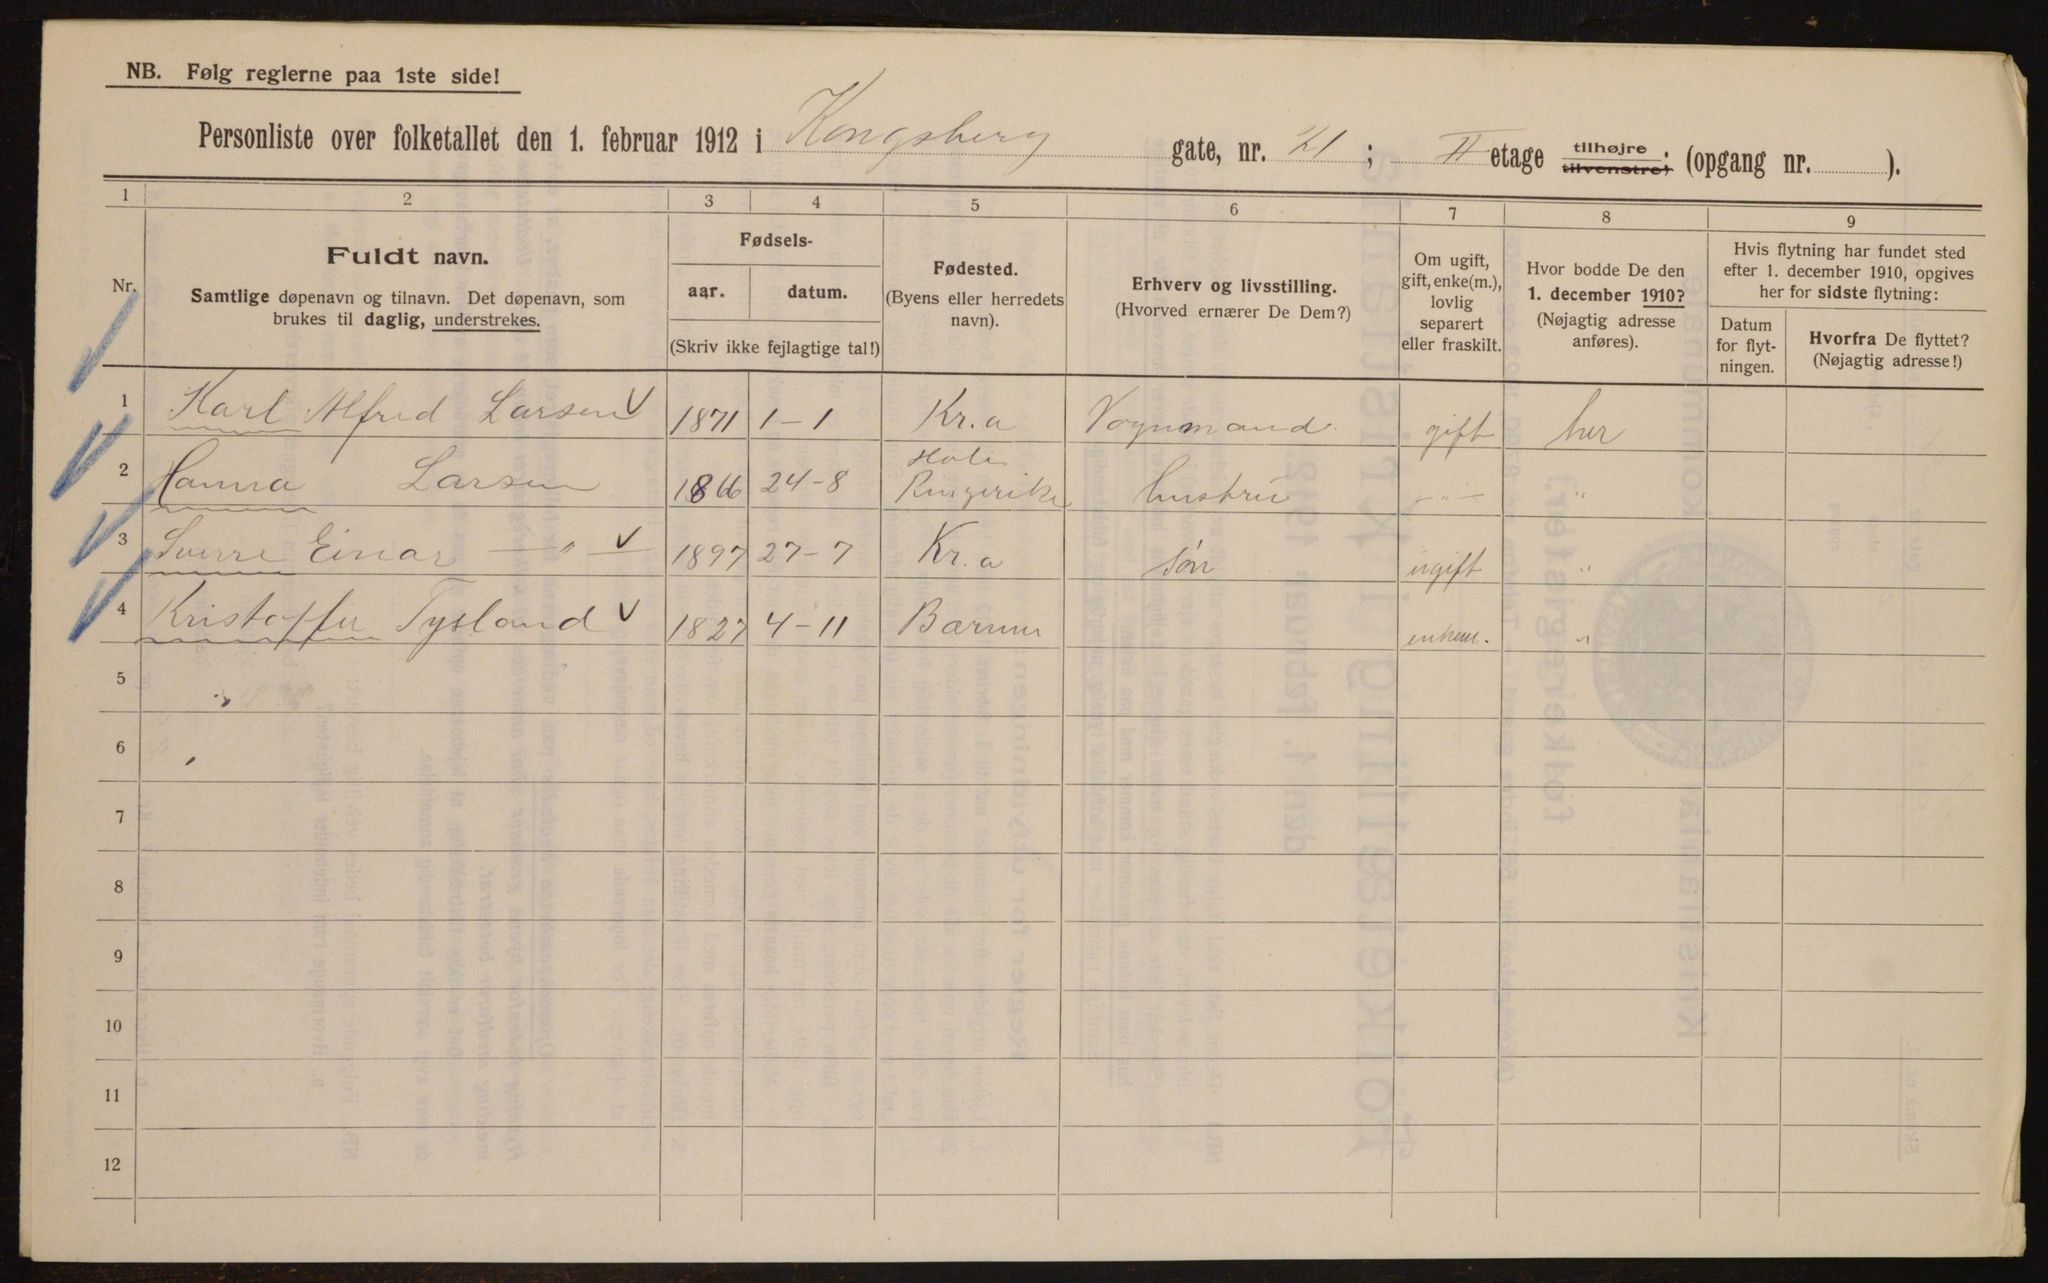 NB. Følg reglerne paa 1ste side!
Personliste over folketallet den 1. februar 1912 i Kongsberg gate, nr. 21; II etage tilhøjre tilvenstre; (opgang nr. ).
1 2 3 4 5 6 7 8 9
Nr.
Fuldt navn.
Samtlige døpenavn og tilnavn. Det døpenavn, som
brukes til daglig, understrekes.
Fødsels-
aar. datum.
(Skriv ikke fejlagtige tal!)
Fødested.
(Byens eller herredets
navn).
Erhverv og livsstilling.
(Hvorved ernærer De Dem?)
Om ugift,
gift, enke(m.),
lovlig
separert
eller fraskilt.
Hvor bodde De den
1. december 1910?
(Nøjagtig adresse
anføres).
Hvis flytning har fundet sted
efter 1. december 1910, opgives
her for sidste flytning:
Datum
for flyt-
ningen.
Hvorfra De flyttet?
(Nøjagtig adresse!)
1 Karl Alfred Larsen 1871 1-1 Kr.a Vognmand. gift her
2 Hanna Larsen 1866 24-8 Hole Ringerike hustru -"- "
3 Sverre Einar —"— 1897 27-7 Kr.a søn ugift "
4 Kristoffer Tysland 1827 4-11 Bærum enkem. "
5
6
7
8
9
10
11
12